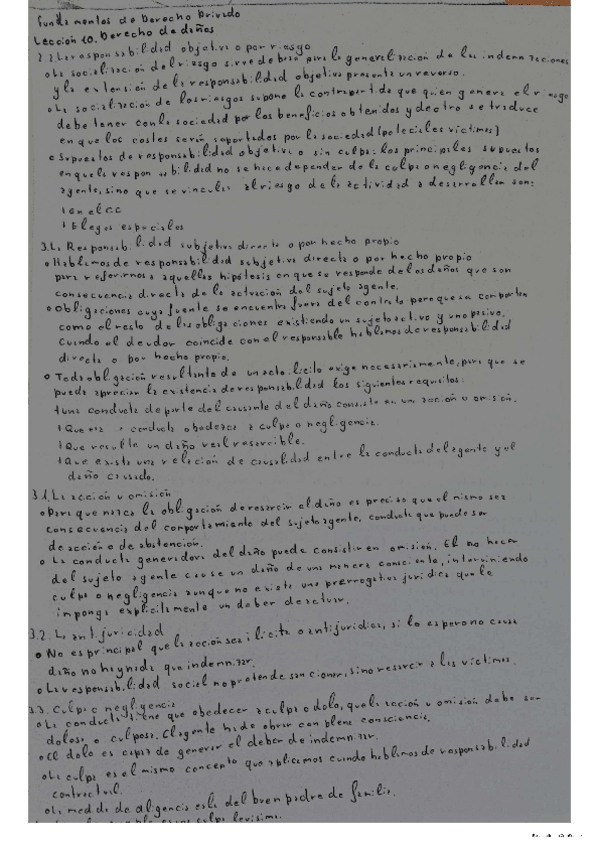 Fundamentos de Derecho Privado
Lección 10. Derecho de daños
2.2 La responsabilidad objetiva o por riesgo
o La socialización del riesgo sirve de base para la generalización de las indemnizaciones
y la extensión de la responsabilidad objetiva presenta un reverso.
o La socialización de los riesgos supone la contrapartida que quien genera el riesgo
debe tener con la sociedad por los beneficios obtenidos y dentro se traduce
en que los costes serán soportados por la sociedad (potenciales víctimas)
o Supuestos de responsabilidad objetiva o sin culpa: los principales supuestos
en que la responsabilidad no se hace depender de la culpa o negligencia del
agente, sino que se vincula al riesgo de la actividad a desarrollar son:
En el CC
Leyes especiales
3. La Responsabilidad subjetiva directa o por hecho propio
o Hablamos de responsabilidad subjetiva directa o por hecho propio
para referirnos a aquellas hipótesis en que se responde de los daños que son
consecuencia directa de la actuación del sujeto agente.
o Obligaciones cuya fuente se encuentra fuera del contrato pero que se comportan
como el resto de las obligaciones existiendo un sujeto activo y uno pasivo.
Cuando el deudor coincide con el responsable hablamos de responsabilidad
directa o por hecho propio.
o Toda obligación resultante de un acto ilícito exige necesariamente, para que se
pueda apreciar la existencia de responsabilidad los siguientes requisitos:
una conducta de parte del causante del daño consista en una acción u omisión.
Que esa conducta obedezca a culpa o negligencia.
Que resulte un daño real resarcible.
Que exista una relación de causalidad entre la conducta del agente y el
daño causado.
3.1. La acción u omisión
o Para que nazca la obligación de resarcir el daño es preciso que el mismo sea
consecuencia del comportamiento del sujeto agente, conducta que puede ser
de acción o de abstención.
o La conducta generadora del daño puede consistir en omisión. El no hacer
del sujeto agente cause un daño de una manera consciente, interviniendo
culpa o negligencia aunque no exista una prerrogativa jurídica que le
imponga explícitamente un deber de actuar.
3.2. La antijuricidad
o No es principal que la acción sea ilícita o antijurídica, si lo es pero no causa
daño no hay nada que indemnizar.
o La responsabilidad social no pretende sancionar, sino resarcir a las víctimas.
3.3. Culpa o negligencia
o La conducta tiene que obedecer a culpa o dolo, que la acción u omisión debe ser
dolosa o culposa. El agente ha de obrar con plena consciencia.
o El dolo es capaz de generar el deber de indemnizar.
o La culpa es el mismo concepto que aplicamos cuando hablamos de responsabilidad
contractual.
o La medida de diligencia es la del buen padre de familia.
culpa levísima.